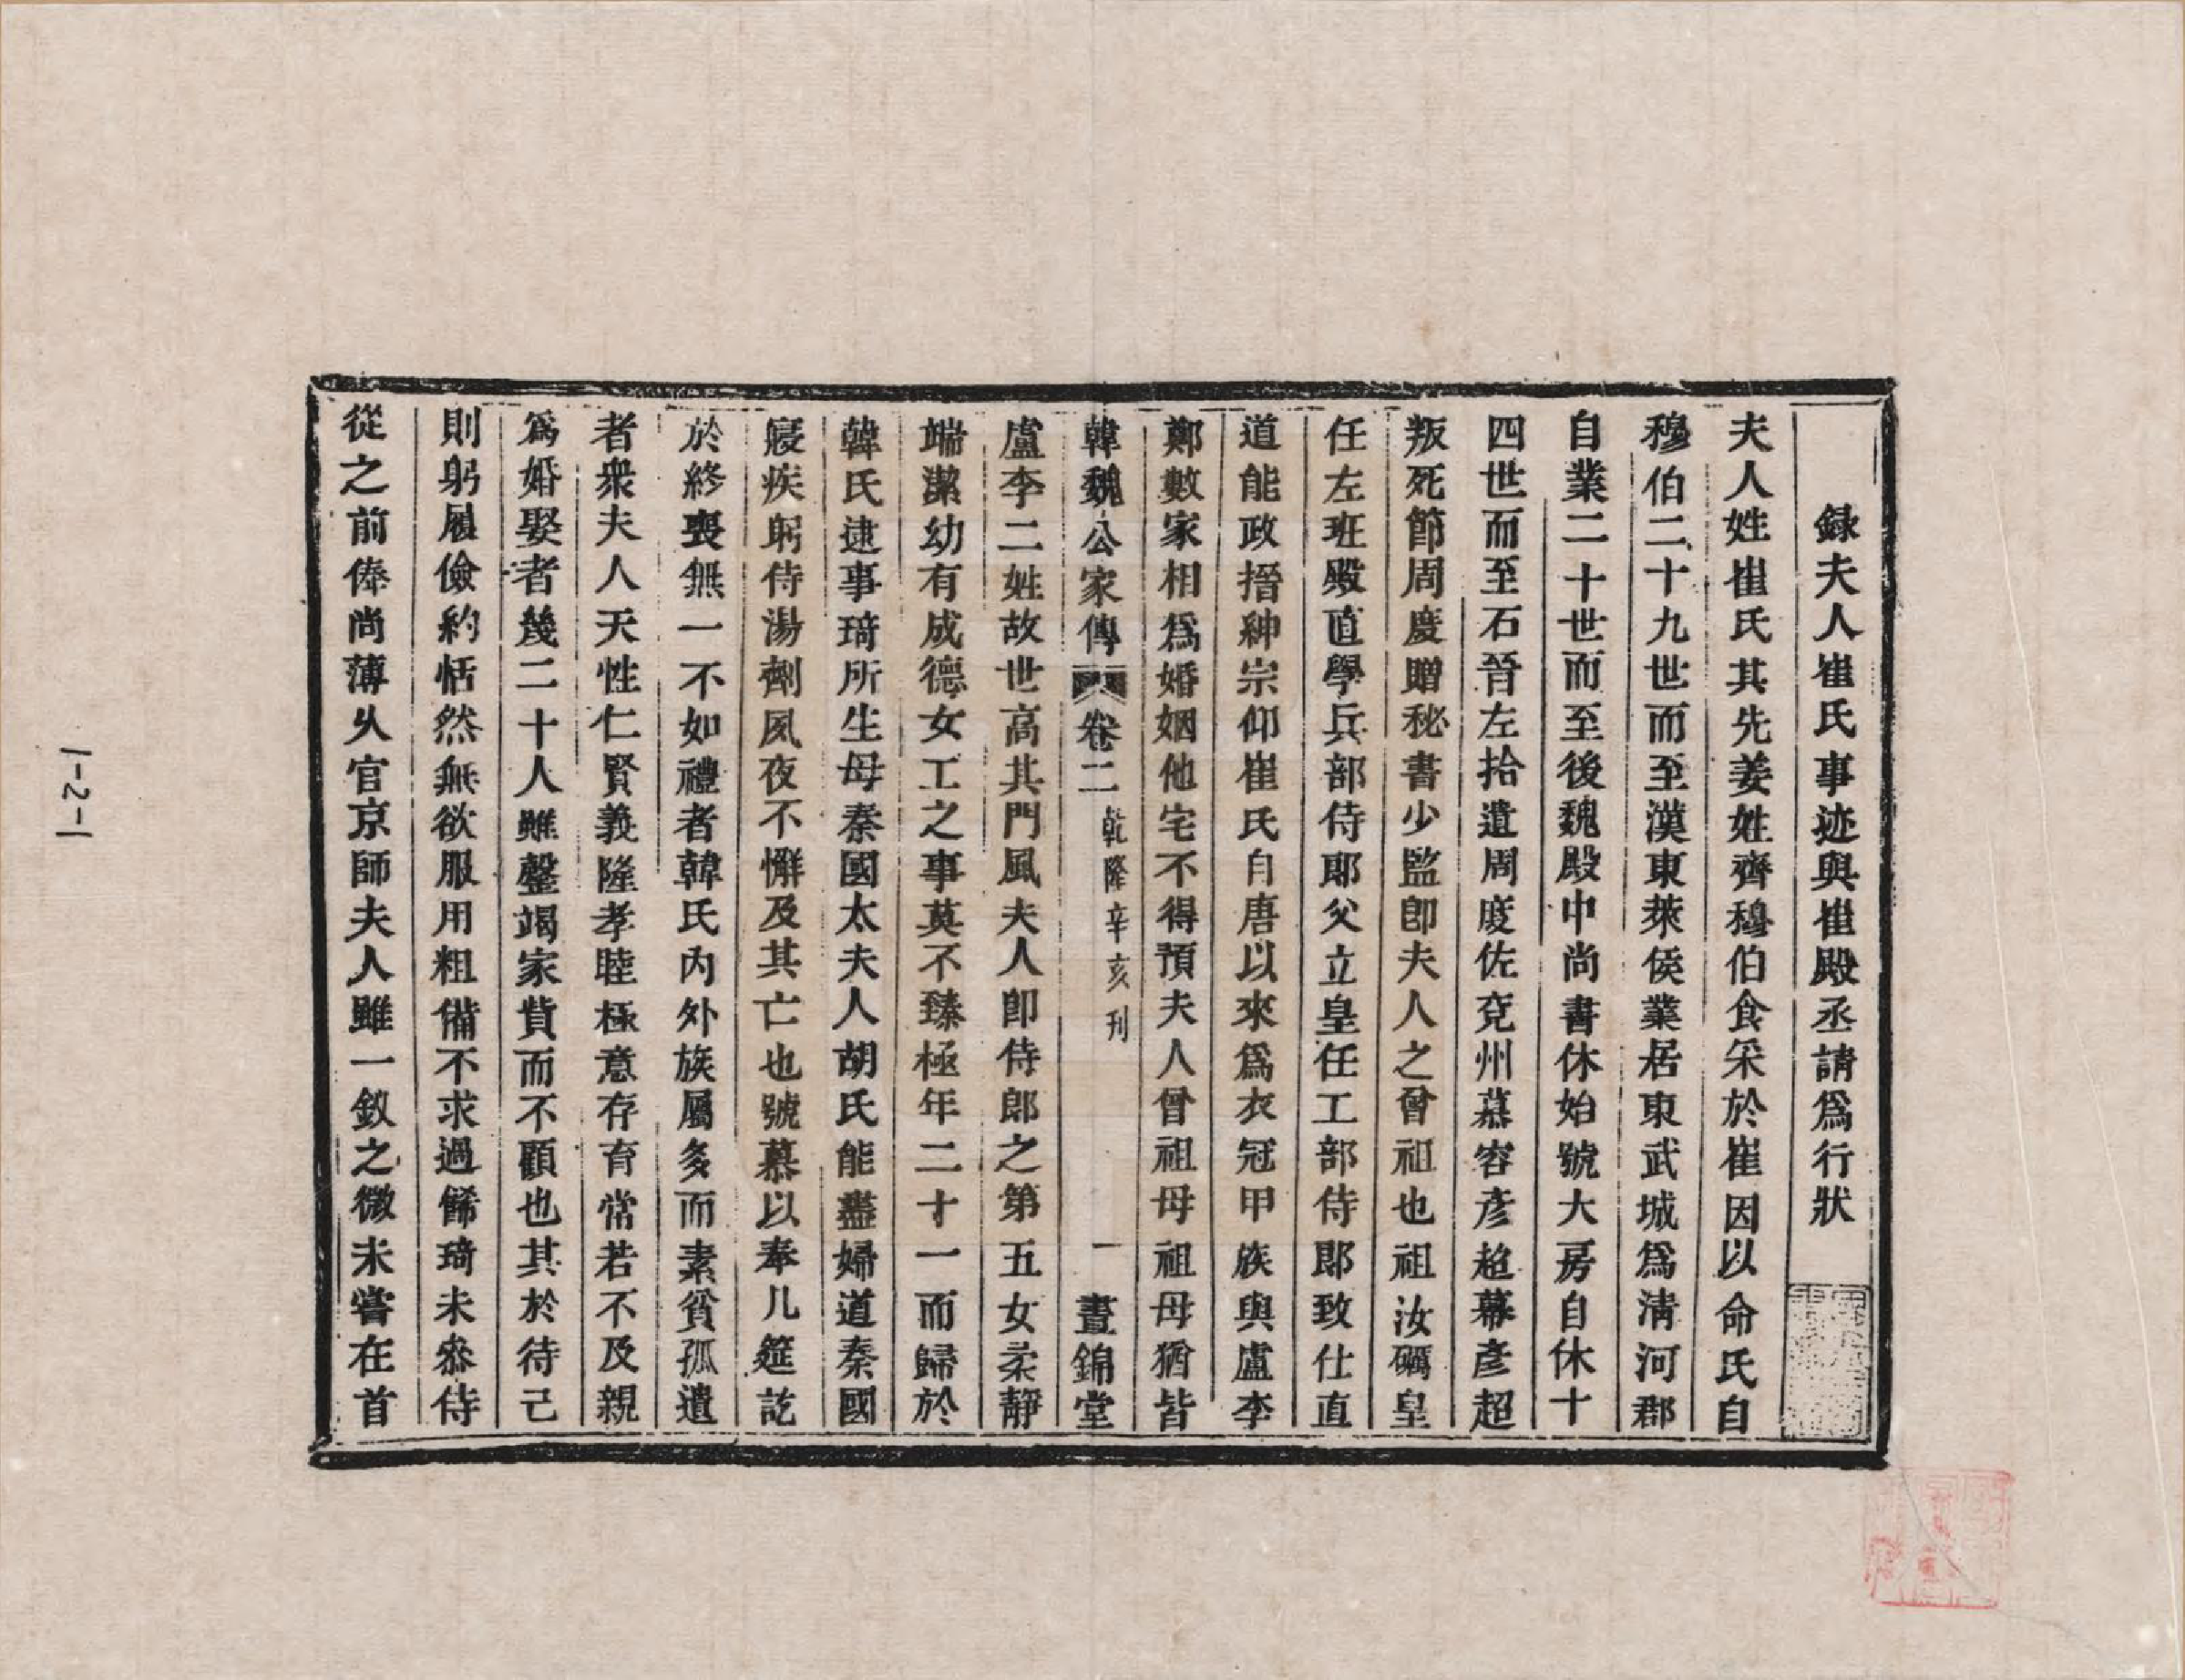 錄夫人崔氏事迹與崔殿丞請爲行狀
夫人姓崔氏其先姜姓齊穆伯食采於崔因以命氏自
穆伯二十九世而至漢東萊侯業居東武城爲淸河郡
自業二十世而至後魏殿中尚書休始號大房自休十
四世而至石晉左拾遺周度佐兗州慕容彥超幕彥超
叛死節周慶贈秘書少監卽夫人之曾祖也祖汝礪皇
任左班殿直學兵部侍郎父立皇任工部侍郎致仕直
道能政搢紳宗仰崔氏自唐以來爲衣冠甲族與盧李
鄭數家相爲婚姻他宅不得預夫人曾祖母祖母猶皆
韓魏公家傳 卷二 乾隆辛亥刊 一 晝錦堂
盧李二姓故世高其門風夫人卽侍郎之第五女柔靜
端潔幼有成德女工之事莫不臻極年二十一而歸於
韓氏逮事琦所生母秦國太夫人胡氏能盡婦道秦國
寢疾躬侍湯劑夙夜不懈及其亡也號慕以奉几筵訖
於終喪無一不如禮者韓氏內外族屬多而素貧孤遺
者衆夫人天性仁賢義隆孝睦極意存育常若不及親
爲婚娶者幾二十人雖罄竭家貲而不顧也其於待己
則躬履儉約恬然無欲服用粗備不求過餙琦未叅侍
從之前俸尚薄乆官京師夫人雖一釵之微未嘗在首
1-2-1